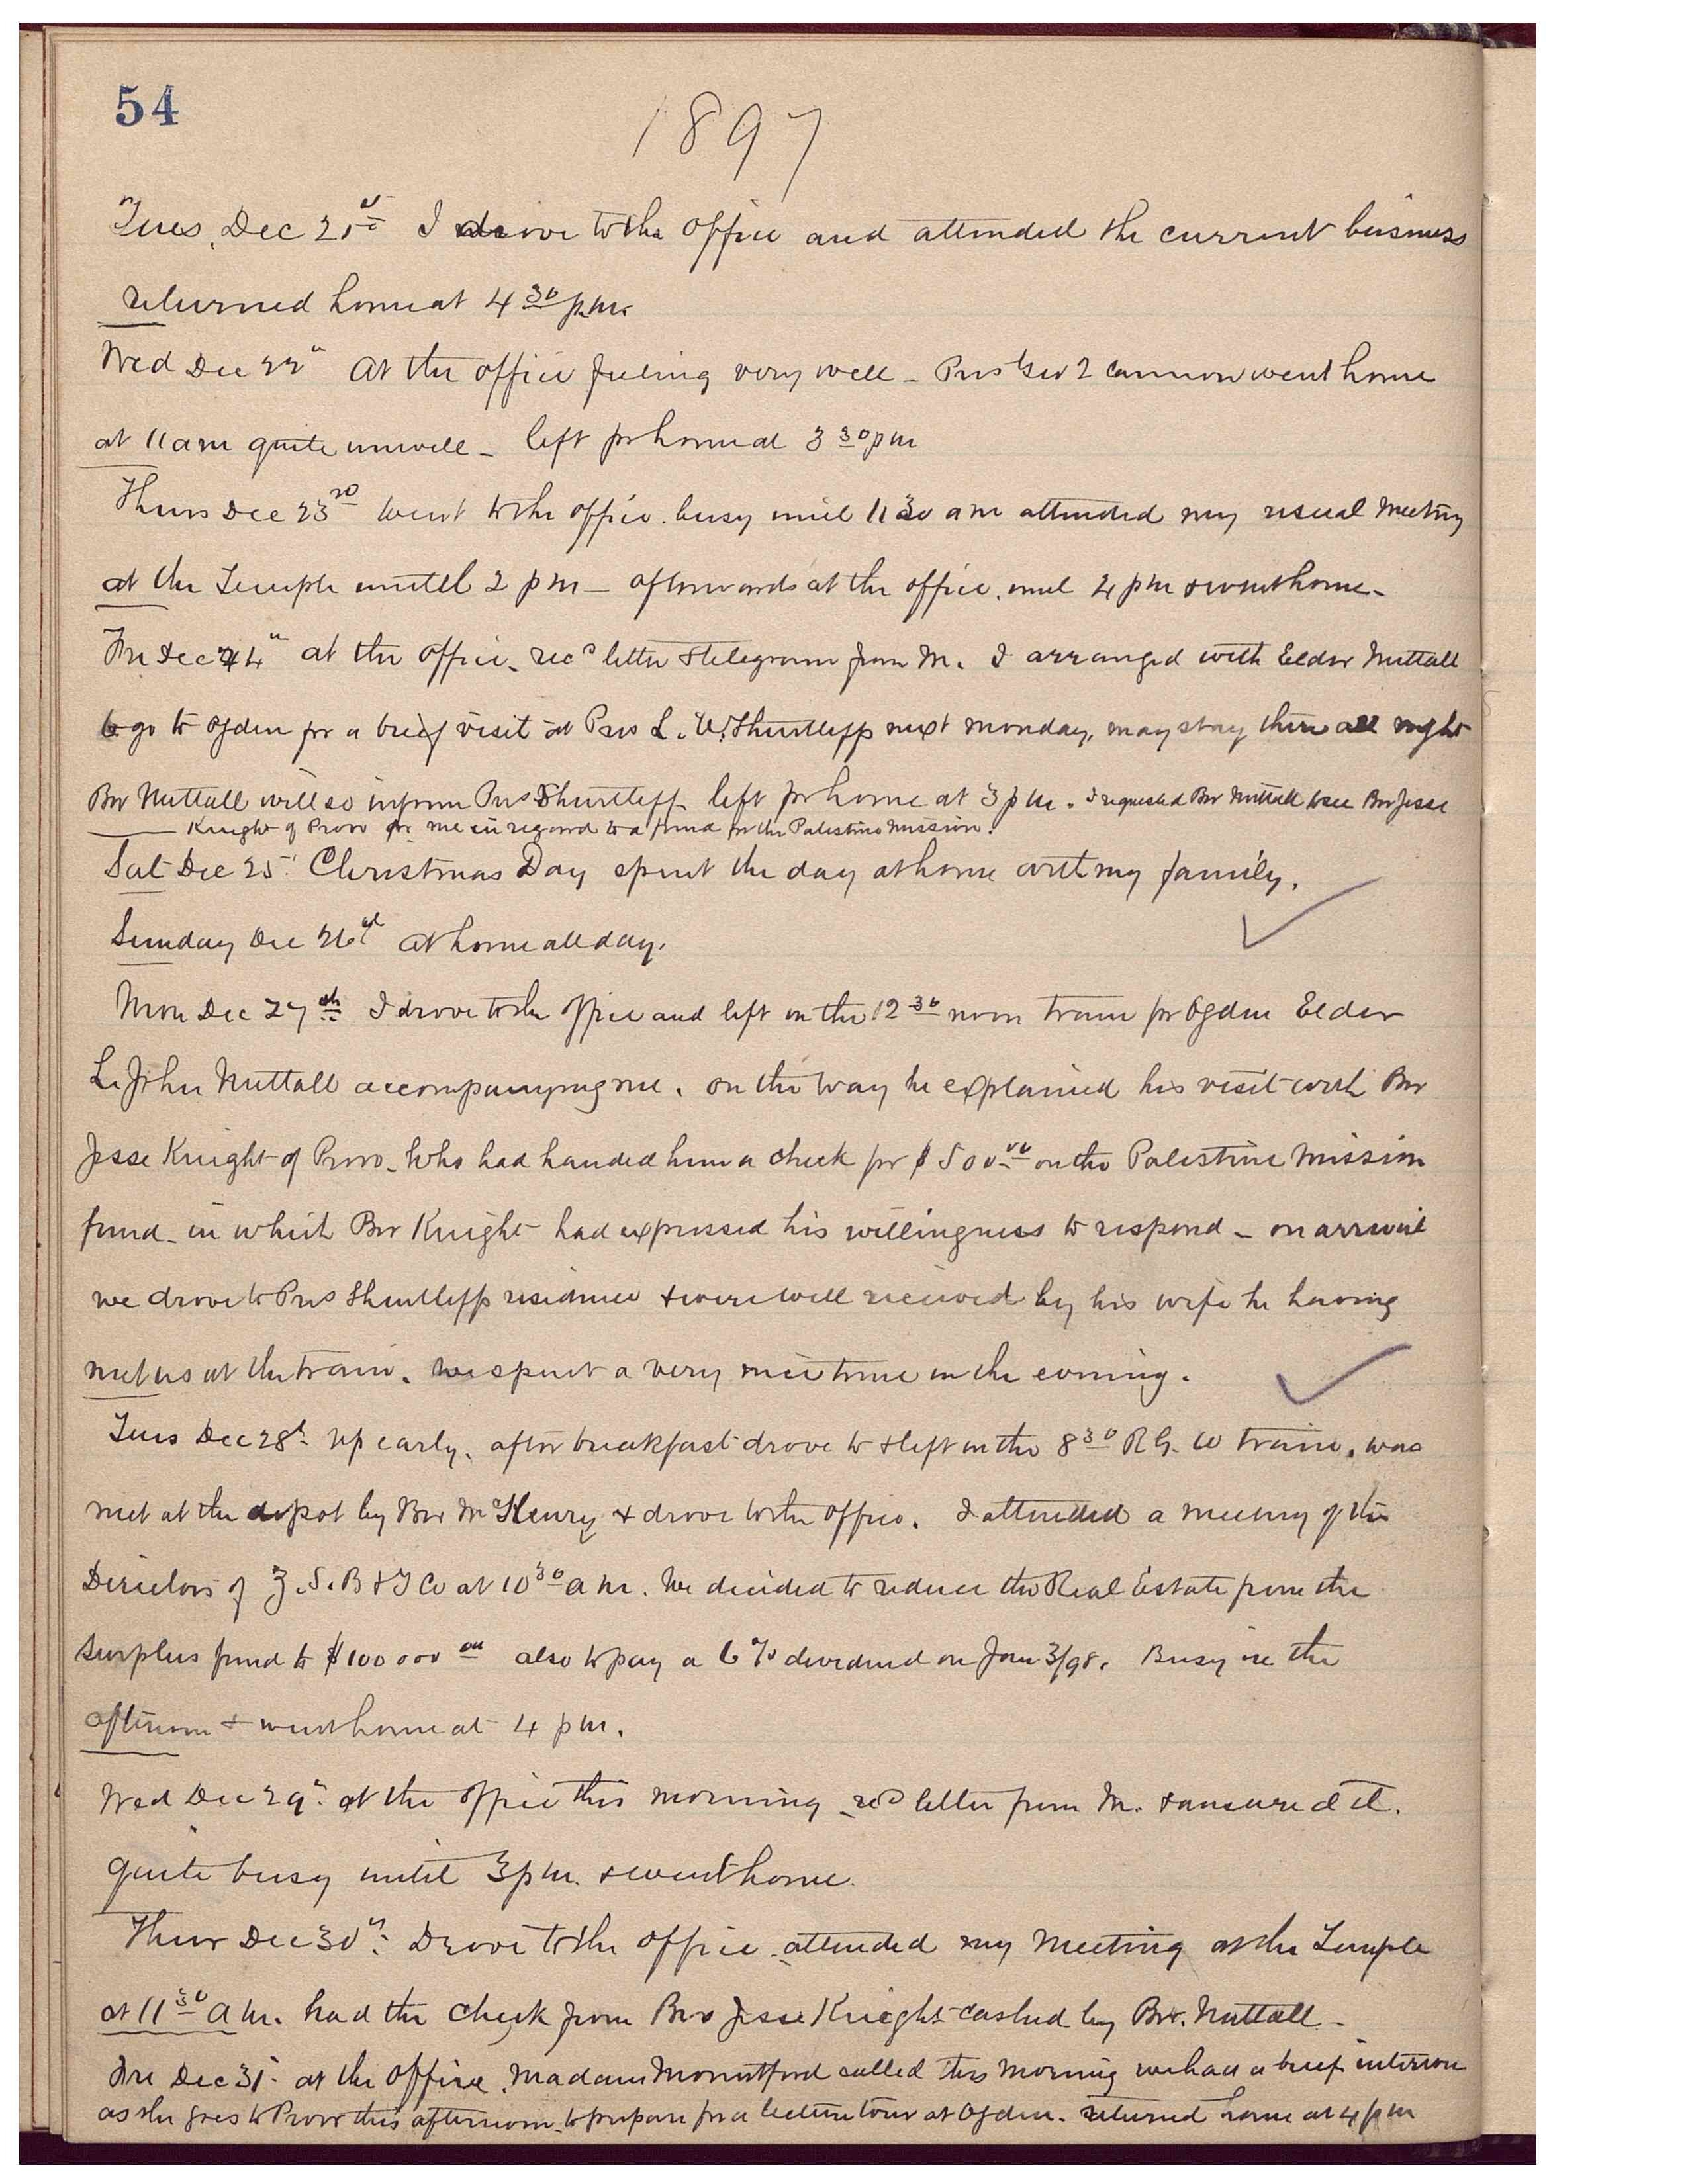 54
1897
Tues, Dec 21st I drove to the office and attended the current business
returned home at 4 30 p.m.
Wed Dec 22" At the office feeling very well - Pres Geo 2 Cannon went home
at 11 am quite unwell - left for home at 3 30 pm
Thurs Dec 23rd went to the office. busy until 11 30 am attended my usual meeting
at the Temple untill 2 pm - afterwards at the office. until 4 pm & went home -
Fri Dec 24" at the office. recd letter & telegram from M. I arranged with Elder Nuttall
to go to Ogden for a brief visit at Pres L. W. Shurtleff next Monday, may stay there all night
Bro Nuttall will so inform Pres Shurtleff left for home at 3 pm. I requested Bro Nuttall to see Bro Jesse
Knight of Provo for me in regard to a fund for the Palestine Mission.
Sat Dec 25. Christmas Day spent the day at home with my family.
Sunday Dec 26th at home all day.
Mon Dec 27th I drove to the office and left on the 12 30 noon train for Ogden Elder
L. John Nuttall accompanying me. on the way he explained his visit with Bro
Jesse Knight of Provo - Who had handed him a check for $500.00 on the Palestine Mission
fund - in which Bro Knight had expressed his willingness to respond - on arrival
we drove to Pres Shurtleff residence & were well received by his wife he having
met us at the train. we spent a very nice time in the evening.
Tues Dec 28th up early, after breakfast drove to & left on the 8 30 R G. W train. was
met at the depot by Bro McHenry & drove to the office. I attended a meeting of the
Directors of Z. S. B & T Co at 10 30 a m. We decided to reduce the Real Estate from the
Surplus fund to $100000 00 also to pay a 6 % dividend on Jan 3/98. Busy in the
afternoon & went home at 4 pm.
Wed Dec 29". at the office this morning recd letter from M. & answered it.
quite busy until 3 pm. & went home.
Thur Dec 30th: Drove to the office. attended my meeting at the Temple
at 11 30 a m. had the check from Bro Jesse Knight cashed by Bro. Nuttall -
Fri Dec 31. at the office. Madam Mountford called this morning we had a brief interview
as she goes to Provo this afternoon to prepare for a lecture tour at Ogden. returned home at 4 pm